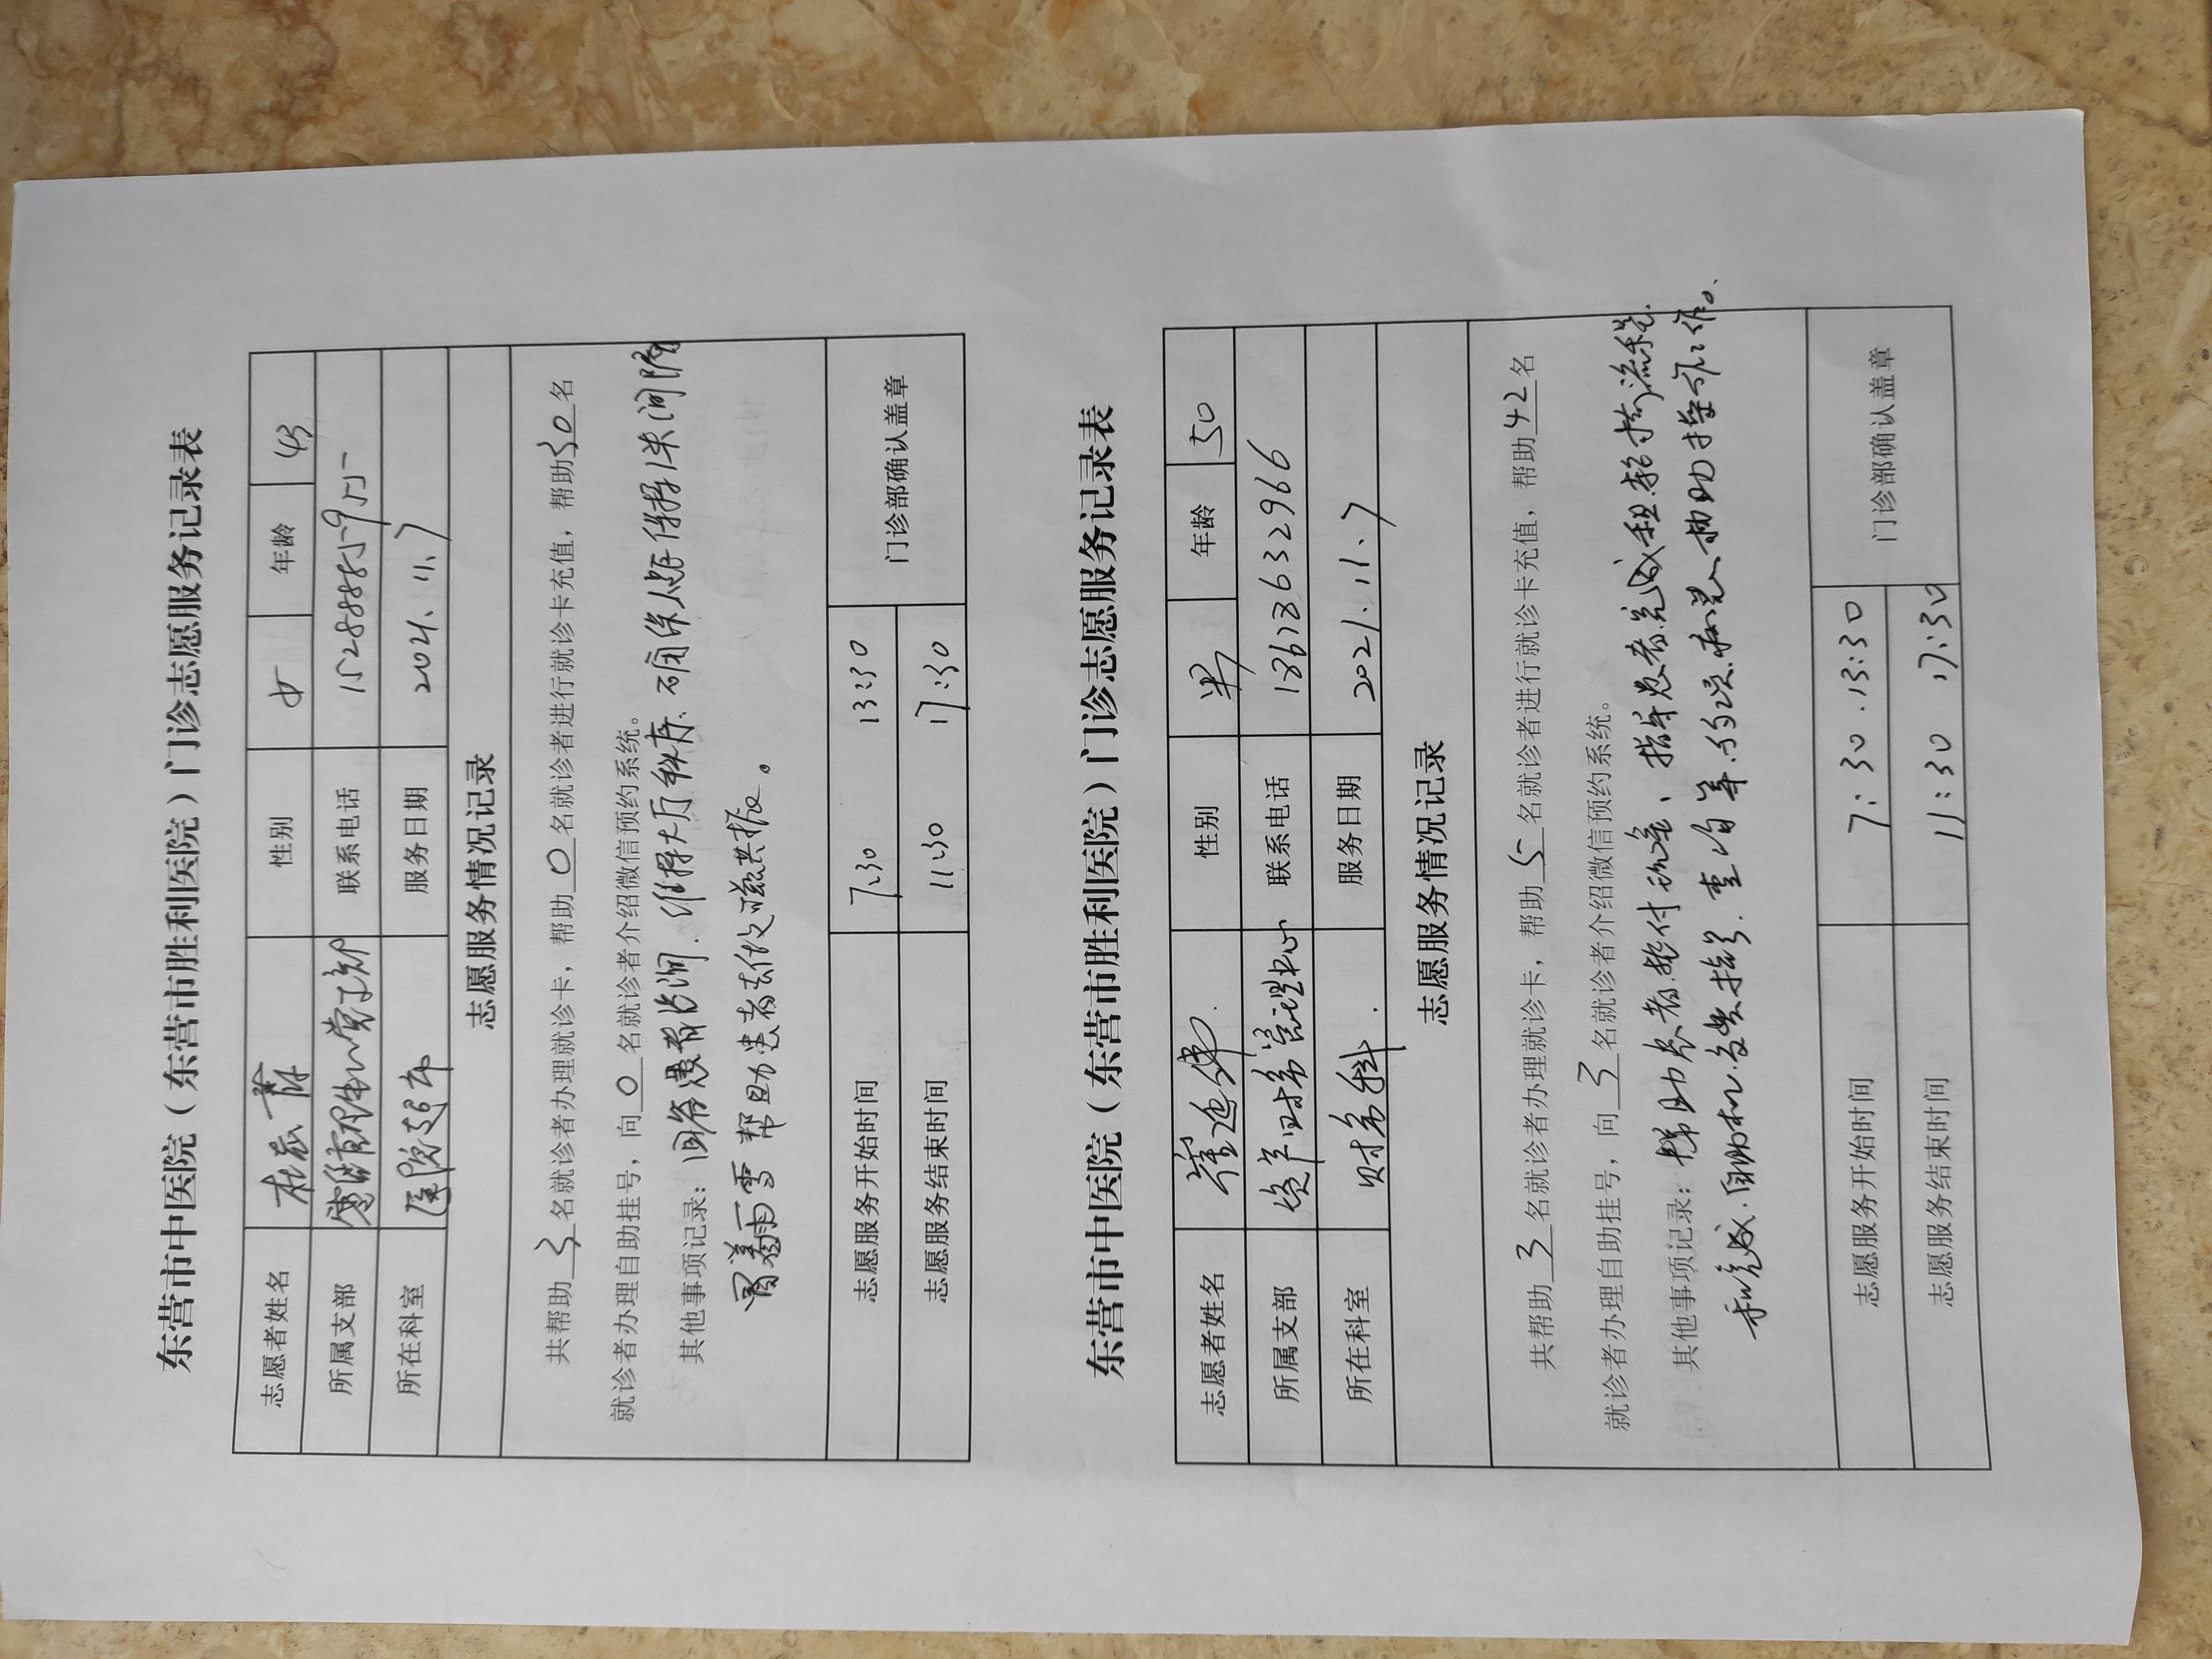 东营市中医院（东营市胜利医院）门诊志愿服务记录表
志愿者姓名 杜 性别 女 年龄 43
所属支部 联系电话 15288859955
所在科室 服务日期 2021.11.7
志愿服务情况记录
共帮助 3 名就诊者办理就诊卡，帮助 0 名就诊者进行就诊卡充值，帮助 30 名
就诊者办理自助挂号，向 0 名就诊者介绍微信预约系统。
其他事项记录：回答患者咨询.维持大厅秩序.确保人群保持1米间隔
冒着雨雪帮助患者去做磁共振。
志愿服务开始时间 7:30 13:30 门诊部确认盖章
志愿服务结束时间 11:30 17:30
东营市中医院（东营市胜利医院）门诊志愿服务记录表
志愿者姓名 崔延伟. 性别 男 年龄 50
所属支部 资产财务管理中心 联系电话 18613632966
所在科室 财务科. 服务日期 2021.11.7
志愿服务情况记录
共帮助 3 名就诊者办理就诊卡，帮助 5 名就诊者进行就诊卡充值，帮助 42 名
就诊者办理自助挂号，向 3 名就诊者介绍微信预约系统。
其他事项记录：帮助患者 指导患者完成 流程.
自助机 查询等 病人 工作。
志愿服务开始时间 7:30 . 13:30 门诊部确认盖章
志愿服务结束时间 11:30 17:30